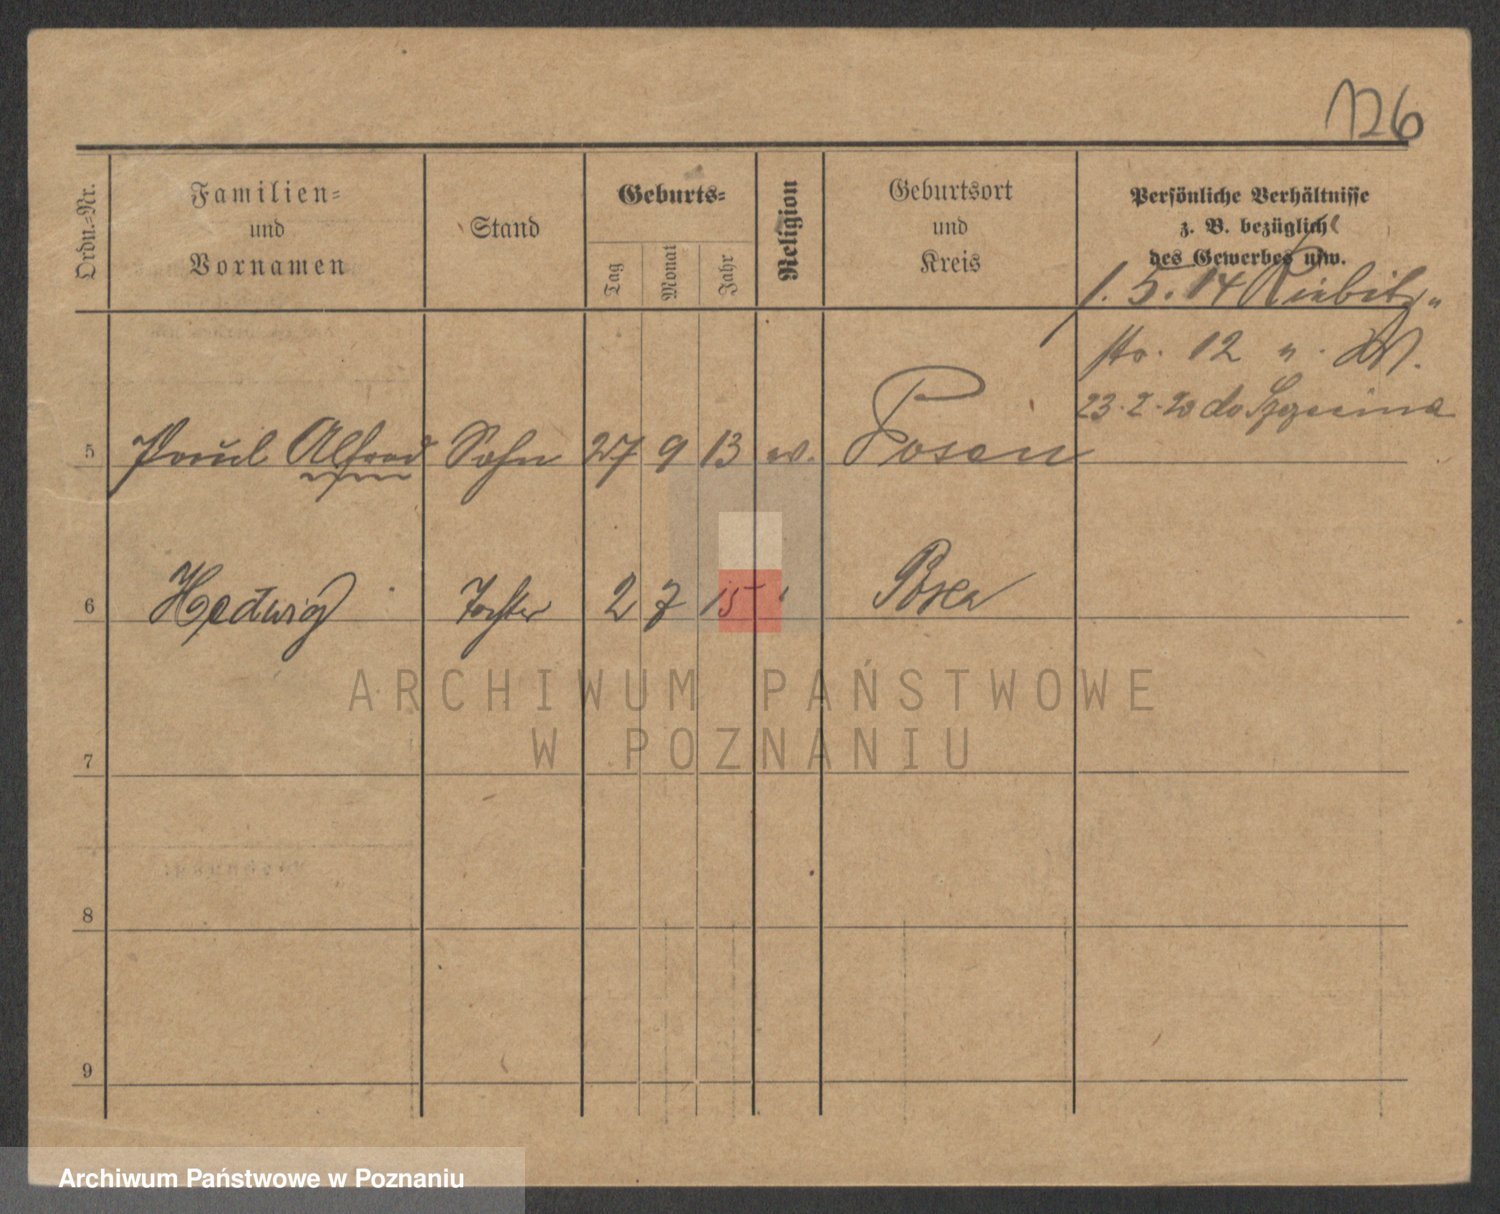 126
Ordn.=Nr.
Familien=
und
Vornamen
Stand
Geburts=
Tag
Monat
Jahr
Religion
Geburtsort
und
Kreis
Persönliche Verhältnisse
z. B. bezüglich
des Gewerbes usw.
1. 5. 14 Kiebitz„
str. 12
23. 2. 20 do
5 Paul Alfred Sohn 27 9 13 ev. Posen
6 Hedwig Tochter 2 7 15 " Posen
7
8
9
ARCHIWUM PAŃSTWOWE
W POZNANIU
Archiwum Państwowe w Poznaniu